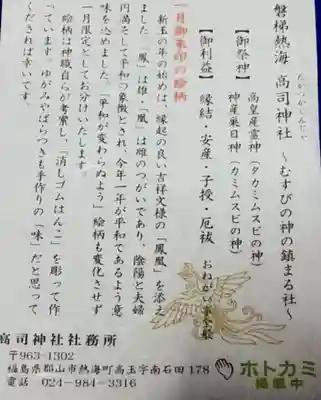 たかつかじんじゃ
磐梯熱海 高司神社 〜むすびの神の鎮まる社〜
【御祭神】
高皇産霊神(タカミムスビの神)
神産巣日神(カミムスビの神)
【御利益】
縁結・安産・子授・厄祓
一月御朱印の絵柄
新玉の年の始めは、縁起の良い吉祥文様の「鳳凰」を添え
ました。「鳳」は雄・「凰」は雌のつがいであり、陰陽と夫婦
円満そして平和の象徴とされ、今年一年が平和であるよう意
味を込めました。「平和が変わらぬよう」絵柄も変化させず
一月限定としてお分けいたします。
絵柄は神職自らが考案し、「消しゴムはんこ」を彫って作
っています。ゆがみやばらつきも手作りの「味」だと思って
くだされば幸いです。
高司神社社務所
〒963-1302
福島県郡山市熱海町高玉字南石田178
電話 024-984-3316
ホトカミ
掲載中